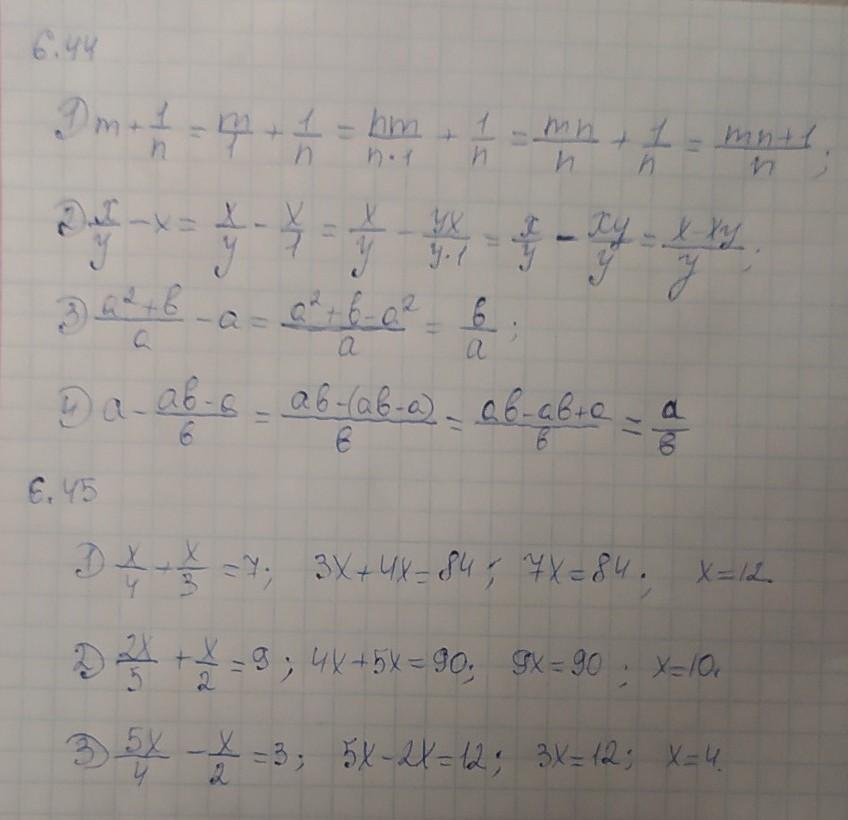 6.44
1) m + 1/n = m/1 + 1/n = nm/n·1 + 1/n = mn/n + 1/n = mn+1/n;
2) x/y - x = x/y - x/1 = x/y - yx/y·1 = x/y - xy/y = x-xy/y;
3) a²+в/a - a = a²+в-a²/a = в/a;
4) a - aв-a/в = aв-(aв-a)/в = aв-aв+a/в = a/в
6.45
1) x/4 + x/3 = 7; 3x+4x=84; 7x=84; x=12.
2) 2x/5 + x/2 = 9; 4x+5x=90; 9x=90; x=10.
3) 5x/4 - x/2 = 3; 5x-2x=12; 3x=12; x=4.